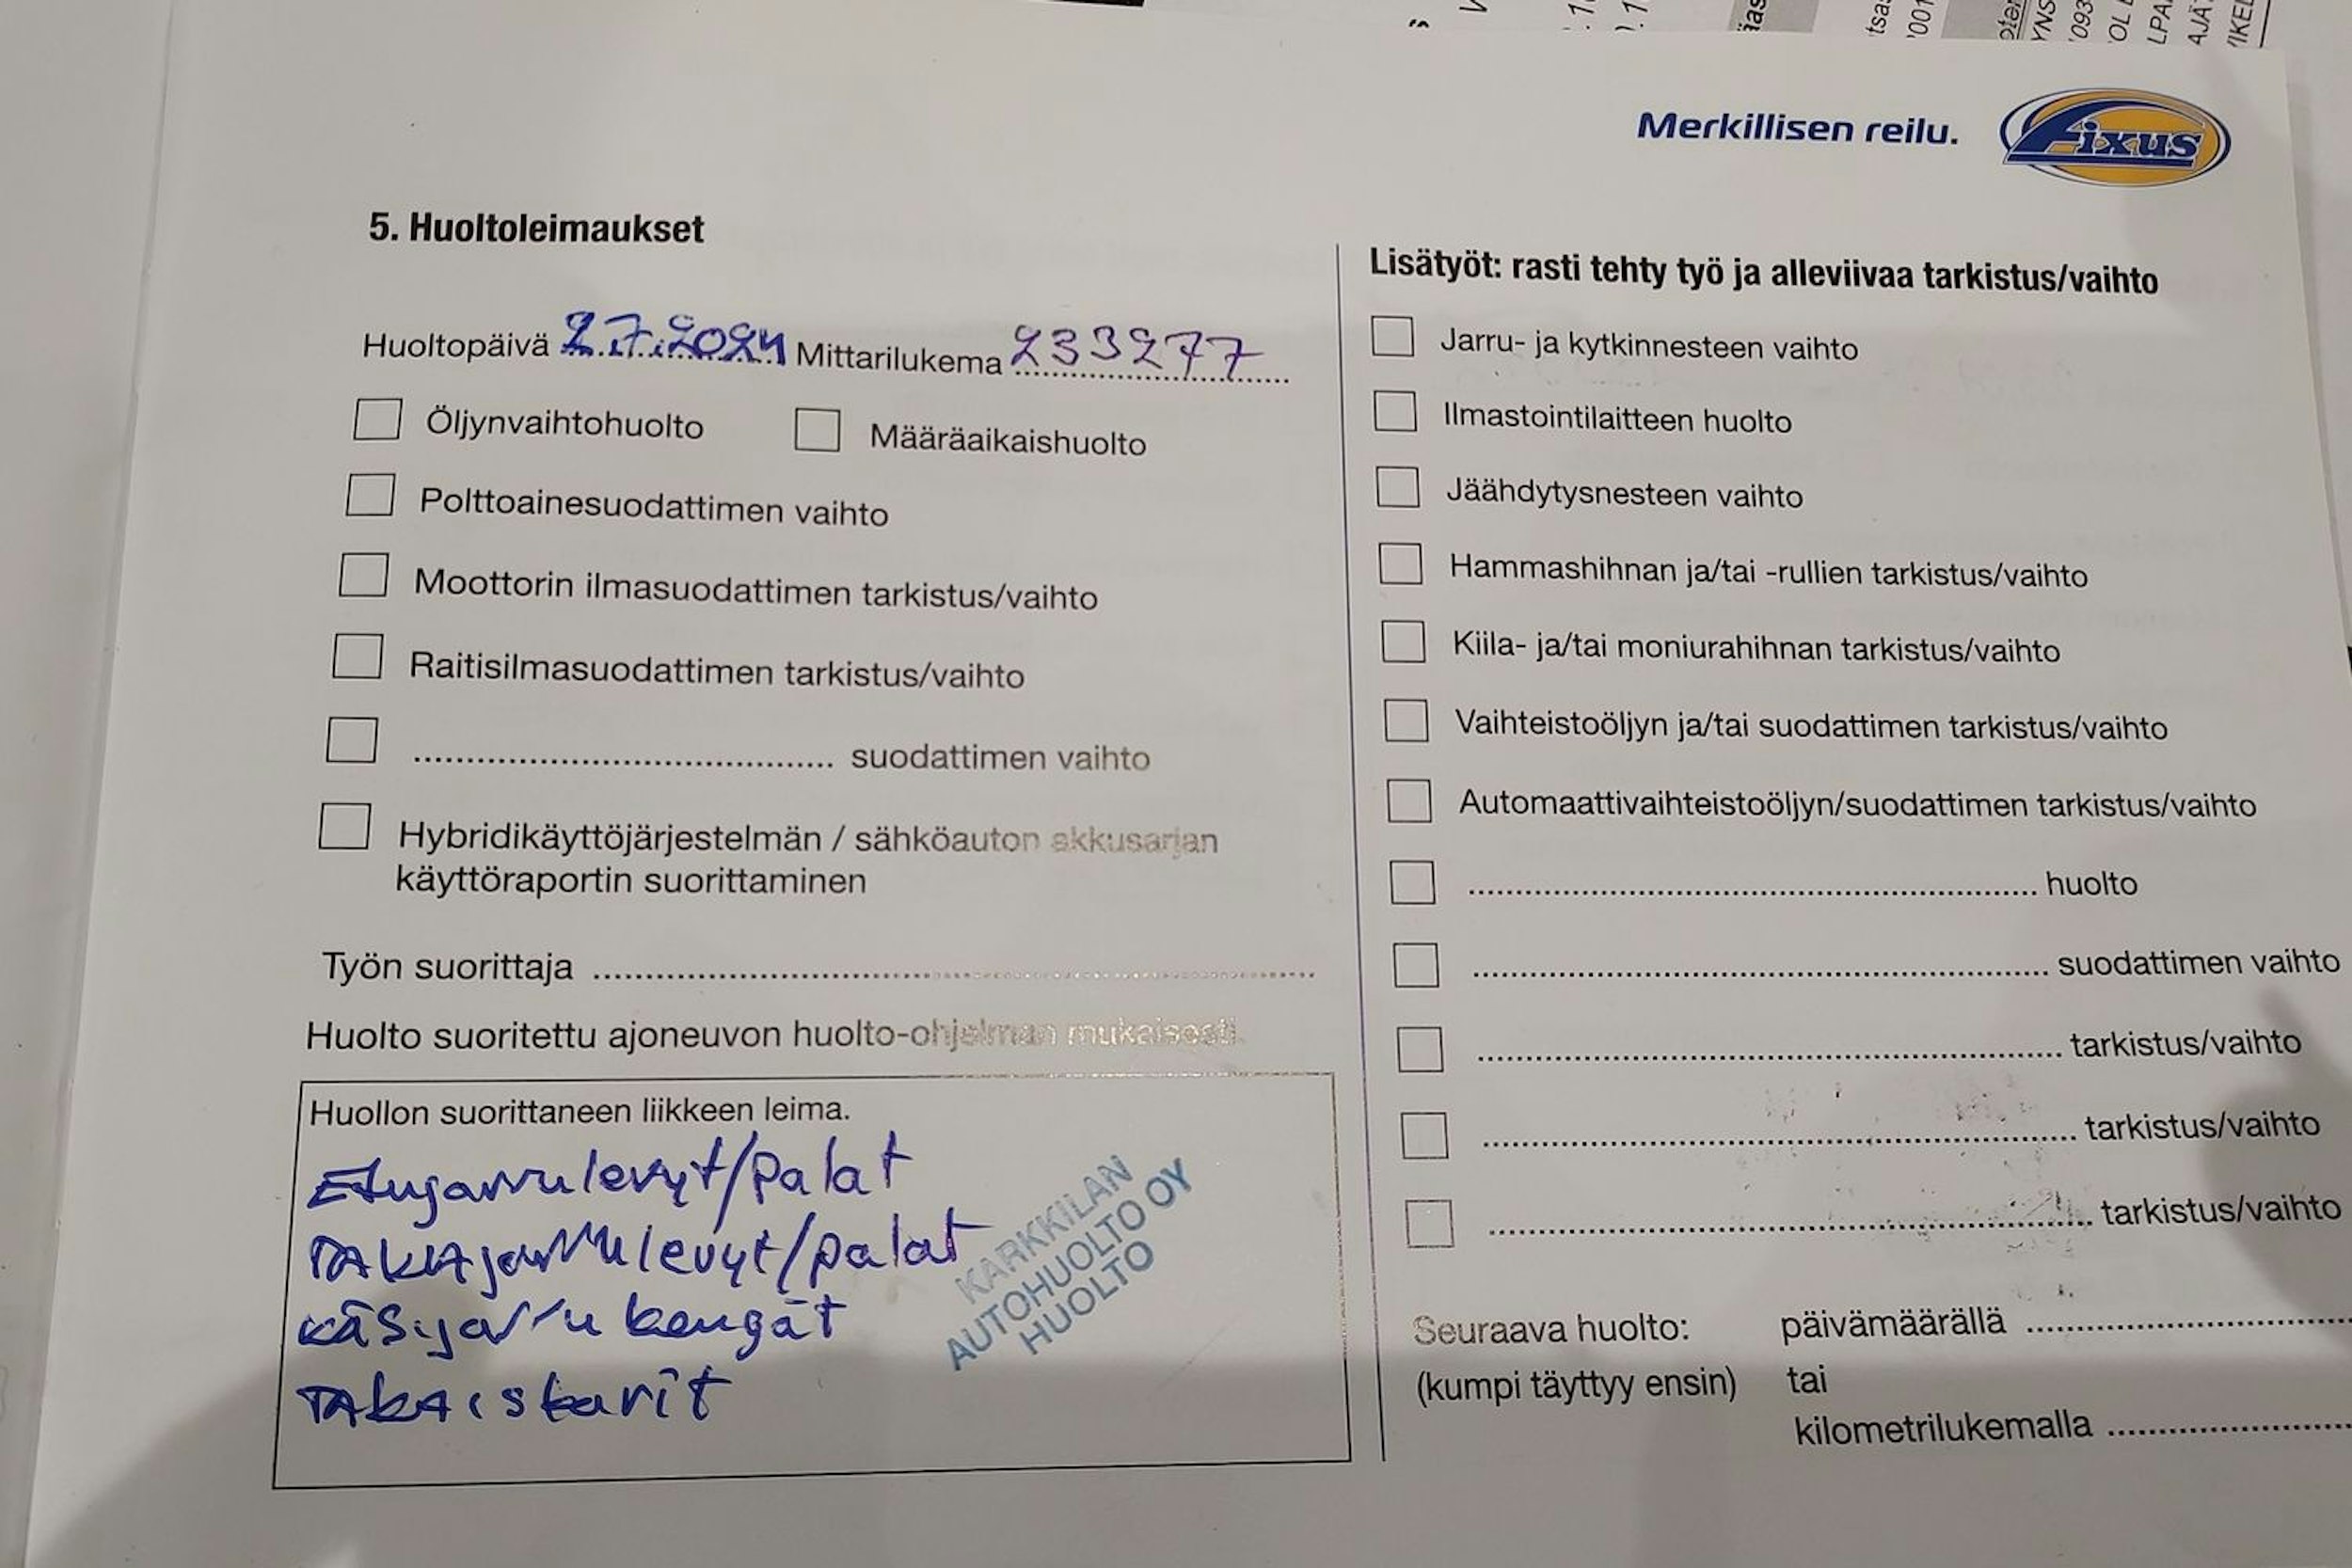 Merkillisen reilu.
Fixus
5. Huoltoleimaukset
Huoltopäivä 2.7.2024 Mittarilukema 233277
Öljynvaihtohuolto Määräaikaishuolto
Polttoainesuodattimen vaihto
Moottorin ilmasuodattimen tarkistus/vaihto
Raitisilmasuodattimen tarkistus/vaihto
........................................ suodattimen vaihto
Hybridikäyttöjärjestelmän / sähköauton akkusarjan
käyttöraportin suorittaminen
Työn suorittaja ........................................
Huolto suoritettu ajoneuvon huolto-ohjelman mukaisesti.
Huollon suorittaneen liikkeen leima.
Etujarrulevyt/palat
TAKAjarrulevyt/palat
käsijarru kengät
TAKAiskarit
KARKKILAN
AUTOHUOLTO OY
HUOLTO
Lisätyöt: rasti tehty työ ja alleviivaa tarkistus/vaihto
Jarru- ja kytkinnesteen vaihto
Ilmastointilaitteen huolto
Jäähdytysnesteen vaihto
Hammashihnan ja/tai -rullien tarkistus/vaihto
Kiila- ja/tai moniurahihnan tarkistus/vaihto
Vaihteistoöljyn ja/tai suodattimen tarkistus/vaihto
Automaattivaihteistoöljyn/suodattimen tarkistus/vaihto
........................................ huolto
........................................ suodattimen vaihto
........................................ tarkistus/vaihto
........................................ tarkistus/vaihto
........................................ tarkistus/vaihto
Seuraava huolto: päivämäärällä ....................
(kumpi täyttyy ensin) tai
kilometrilukemalla ....................